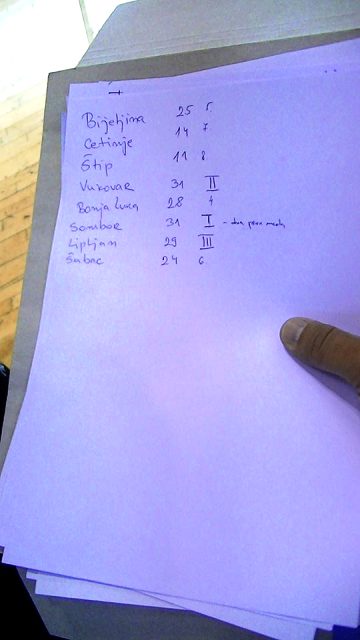 Bijeljina 25 5.
Cetinje 14 7.
Štip 11 8.
Vukovar 31 II
Banja Luka 28 4
Sombor 31 I - dva prva mesta
Lipljan 29 III
Šabac 24 6.